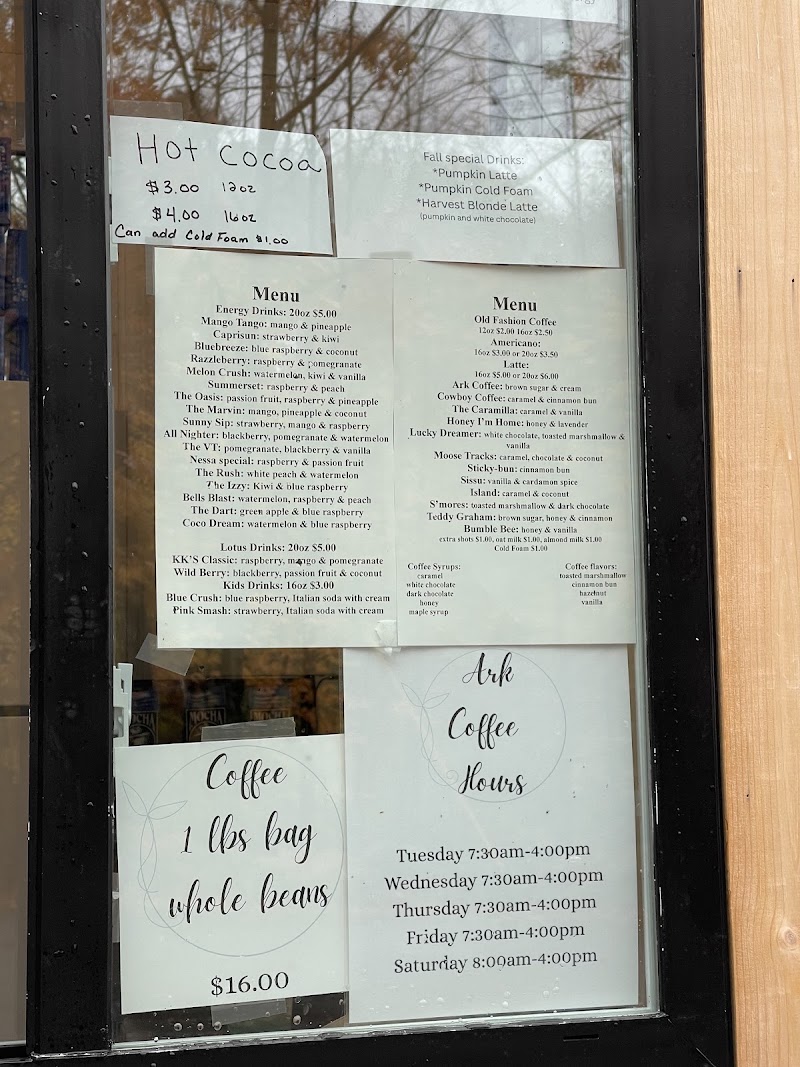 Hot Cocoa
$3.00 12oz
$4.00 16oz
Can add Cold Foam $1.00
Fall special Drinks:
*Pumpkin Latte
*Pumpkin Cold Foam
*Harvest Blonde Latte
(pumpkin and white chocolate)
Menu
Energy Drinks: 20oz $5.00
Mango Tango: mango & pineapple
Caprisun: strawberry & kiwi
Bluebreeze: blue raspberry & coconut
Razzleberry: raspberry & pomegranate
Melon Crush: watermelon, kiwi & vanilla
Summerset: raspberry & peach
The Oasis: passion fruit, raspberry & pineapple
The Marvin: mango, pineapple & coconut
Sunny Sip: strawberry, mango & raspberry
All Nighter: blackberry, pomegranate & watermelon
The VT: pomegranate, blackberry & vanilla
Nessa special: raspberry & passion fruit
The Rush: white peach & watermelon
The Izzy: Kiwi & blue raspberry
Bells Blast: watermelon, raspberry & peach
The Dart: green apple & blue raspberry
Coco Dream: watermelon & blue raspberry
Lotus Drinks: 20oz $5.00
KK'S Classic: raspberry, mango & pomegranate
Wild Berry: blackberry, passion fruit & coconut
Kids Drinks: 16oz $3.00
Blue Crush: blue raspberry, Italian soda with cream
Pink Smash: strawberry, Italian soda with cream
Menu
Old Fashion Coffee
12oz $2.00 16oz $2.50
Americano:
16oz $3.00 or 20oz $3.50
Latte:
16oz $5.00 or 20oz $6.00
Ark Coffee: brown sugar & cream
Cowboy Coffee: caramel & cinnamon bun
The Caramilla: caramel & vanilla
Honey I'm Home: honey & lavender
Lucky Dreamer: white chocolate, toasted marshmallow &
vanilla
Moose Tracks: caramel, chocolate & coconut
Sticky-bun: cinnamon bun
Sissu: vanilla & cardamon spice
Island: caramel & coconut
S'mores: toasted marshmallow & dark chocolate
Teddy Graham: brown sugar, honey & cinnamon
Bumble Bee: honey & vanilla
extra shots $1.00, oat milk $1.00, almond milk $1.00
Cold Foam $1.00
Coffee Syrups:
caramel
white chocolate
dark chocolate
honey
maple syrup
Coffee flavors:
toasted marshmallow
cinnamon bun
hazelnut
vanilla
MOCHA
MOCHA
MOCHA
Coffee
1 lbs bag
whole beans
$16.00
Ark
Coffee
Hours
Tuesday 7:30am-4:00pm
Wednesday 7:30am-4:00pm
Thursday 7:30am-4:00pm
Friday 7:30am-4:00pm
Saturday 8:00am-4:00pm